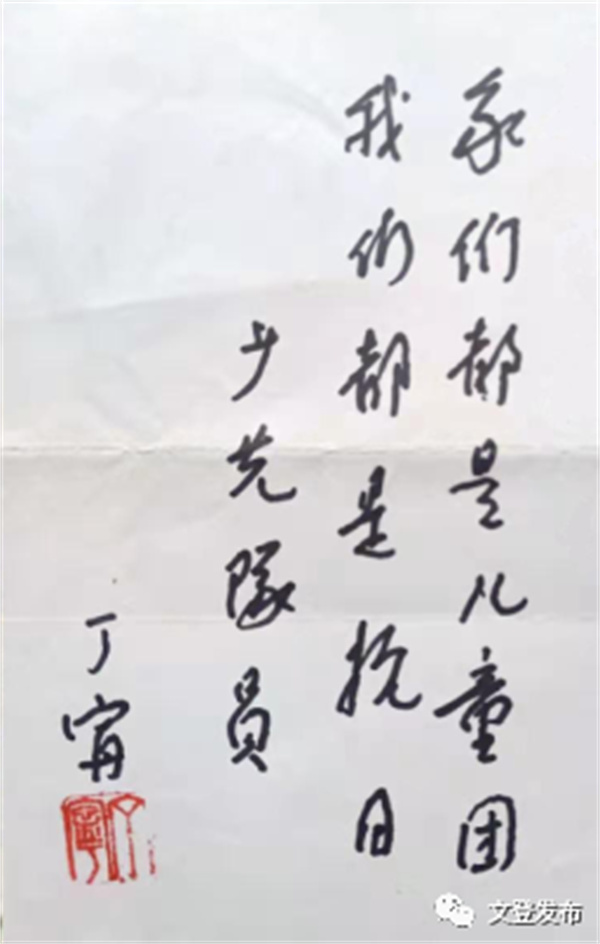 我们都是儿童团
我们都是抗日
少先隊員
丁甯
文登发布